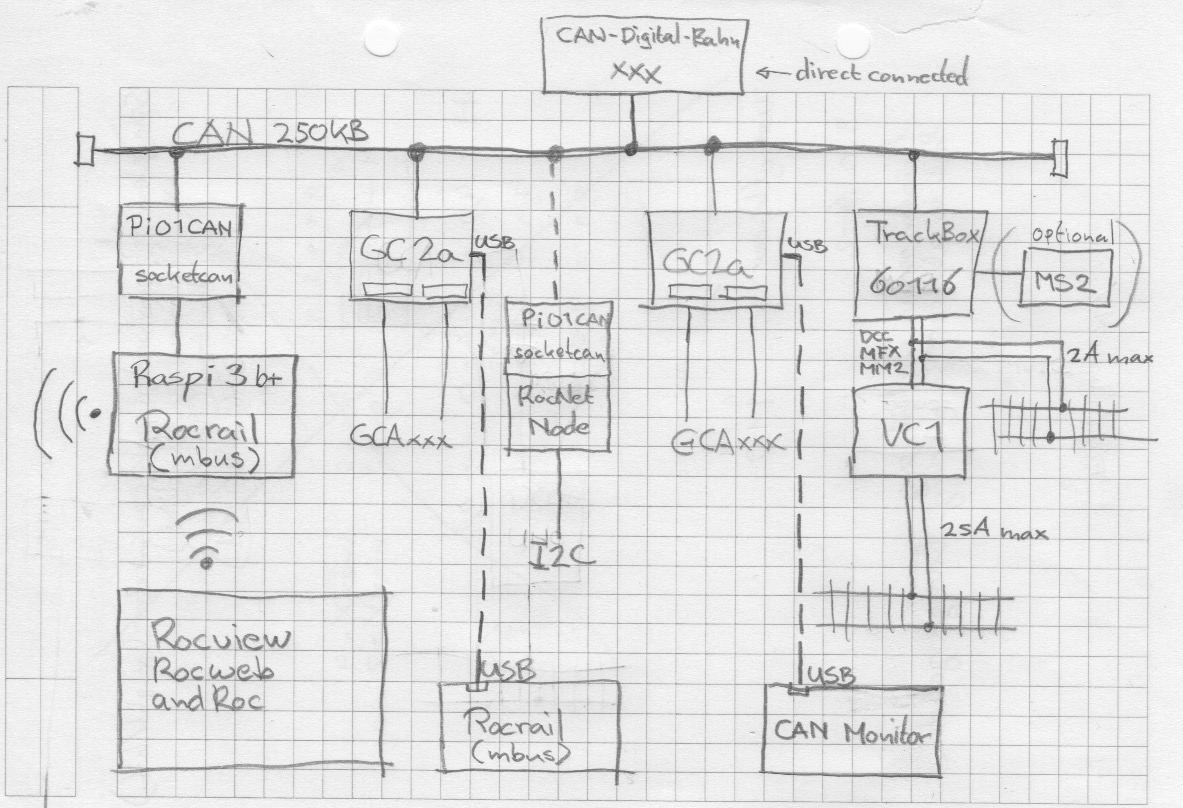 CAN-Digital-Bahn
xxx
← direct connected
CAN 250KB
Pi01CAN
socketcan
GC2a
USB
GC2a
USB
TrackBox
60116
optional
MS2
Pi01CAN
socketcan
RocNet
Node
DCC
MFX
MM2
2A max
Raspi 3b+
Rocrail
(mbus)
GCAxxx
GCAxxx
VC1
I2C
25A max
Rocview
Rocweb
and Roc
USB
Rocrail
(mbus)
USB
CAN Monitor